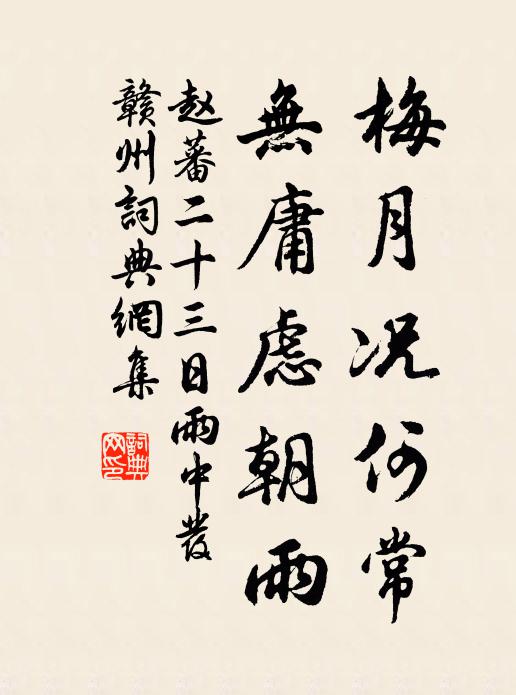 梅月况何常
無庸慮朝雨
赵蕃二十三日雨中發
贛州詞典網集
詞典网印